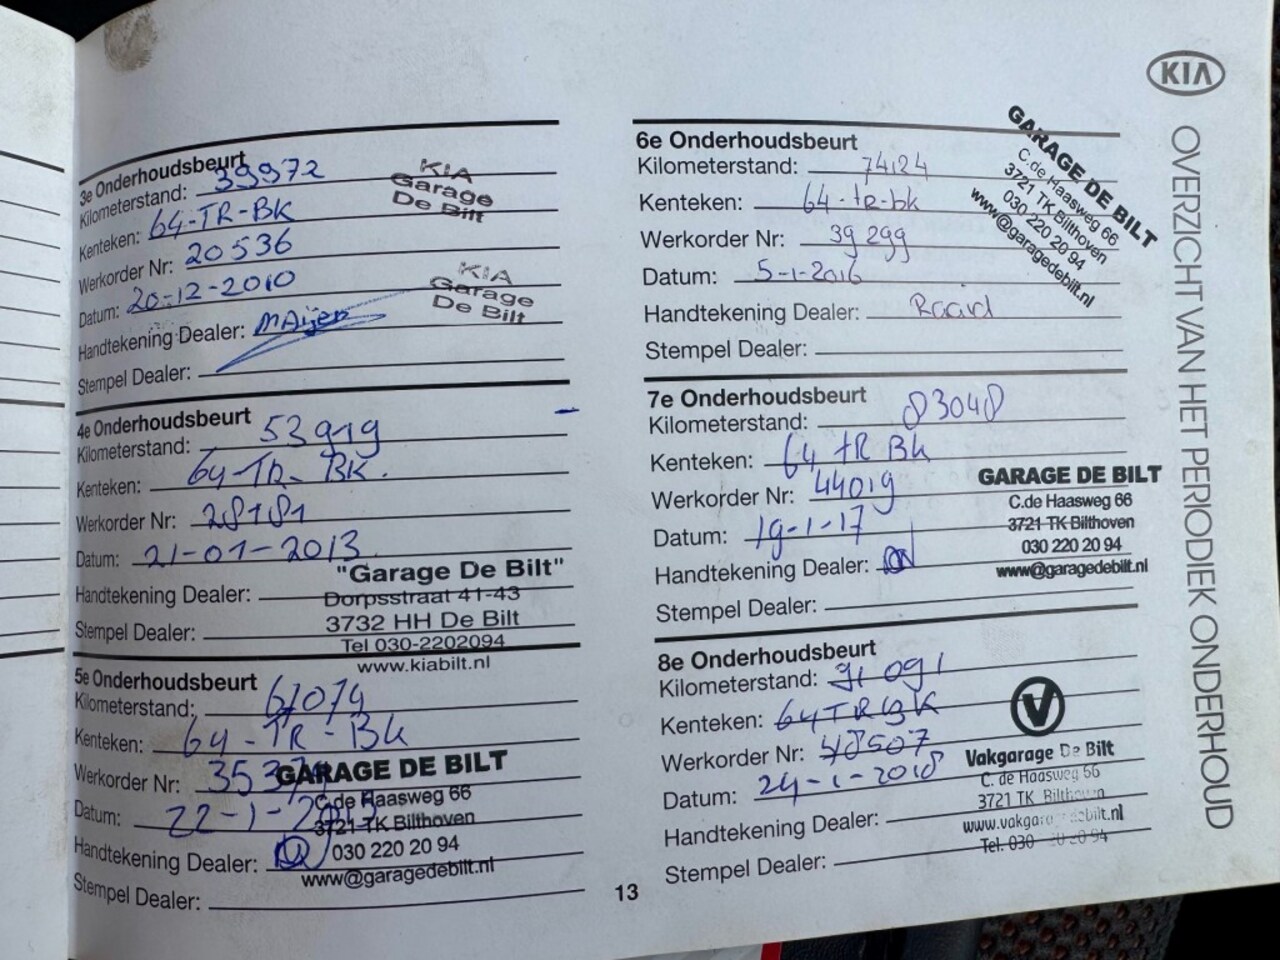 KIA
OVERZICHT VAN HET PERIODIEK ONDERHOUD
3e Onderhoudsbeurt
Kilometerstand: 39972
Kenteken: 64-TR-BK
Werkorder Nr: 20536
Datum: 20-12-2010
Handtekening Dealer:
Stempel Dealer:
KIA
Garage
De Bilt
KIA
Garage
De Bilt
4e Onderhoudsbeurt
Kilometerstand: 53919
Kenteken: 64-TR-BK.
Werkorder Nr: 28181
Datum: 21-01-2013
Handtekening Dealer:
Stempel Dealer:
"Garage De Bilt"
Dorpsstraat 41-43
3732 HH De Bilt
Tel 030-2202094
www.kiabilt.nl
5e Onderhoudsbeurt
Kilometerstand: 67074
Kenteken: 64-TR-Bk
Werkorder Nr:
Datum: 22-1-2015
Handtekening Dealer:
Stempel Dealer:
GARAGE DE BILT
C.de Haasweg 66
3721 TK Bilthoven
030 220 20 94
www@garagedebilt.nl
6e Onderhoudsbeurt
Kilometerstand: 74124
Kenteken: 64-tr-bk
Werkorder Nr: 39299
Datum: 5-1-2016
Handtekening Dealer: Raard
Stempel Dealer:
GARAGE DE BILT
C.de Haasweg 66
3721 TK Bilthoven
030 220 20 94
www@garagedebilt.nl
7e Onderhoudsbeurt
Kilometerstand: 83048
Kenteken: 64 tR Bk
Werkorder Nr: 44019
Datum: 19-1-17
Handtekening Dealer:
Stempel Dealer:
GARAGE DE BILT
C.de Haasweg 66
3721 TK Bilthoven
030 220 20 94
www@garagedebilt.nl
8e Onderhoudsbeurt
Kilometerstand: 91091
Kenteken: 64TRBK
Werkorder Nr: 48507
Datum: 24-1-2018
Handtekening Dealer:
Stempel Dealer:
V
Vakgarage De Bilt
C. de Haasweg 66
3721 TK Bilthoven
www.vakgaragedebilt.nl
Tel. 030 220 20 94
13